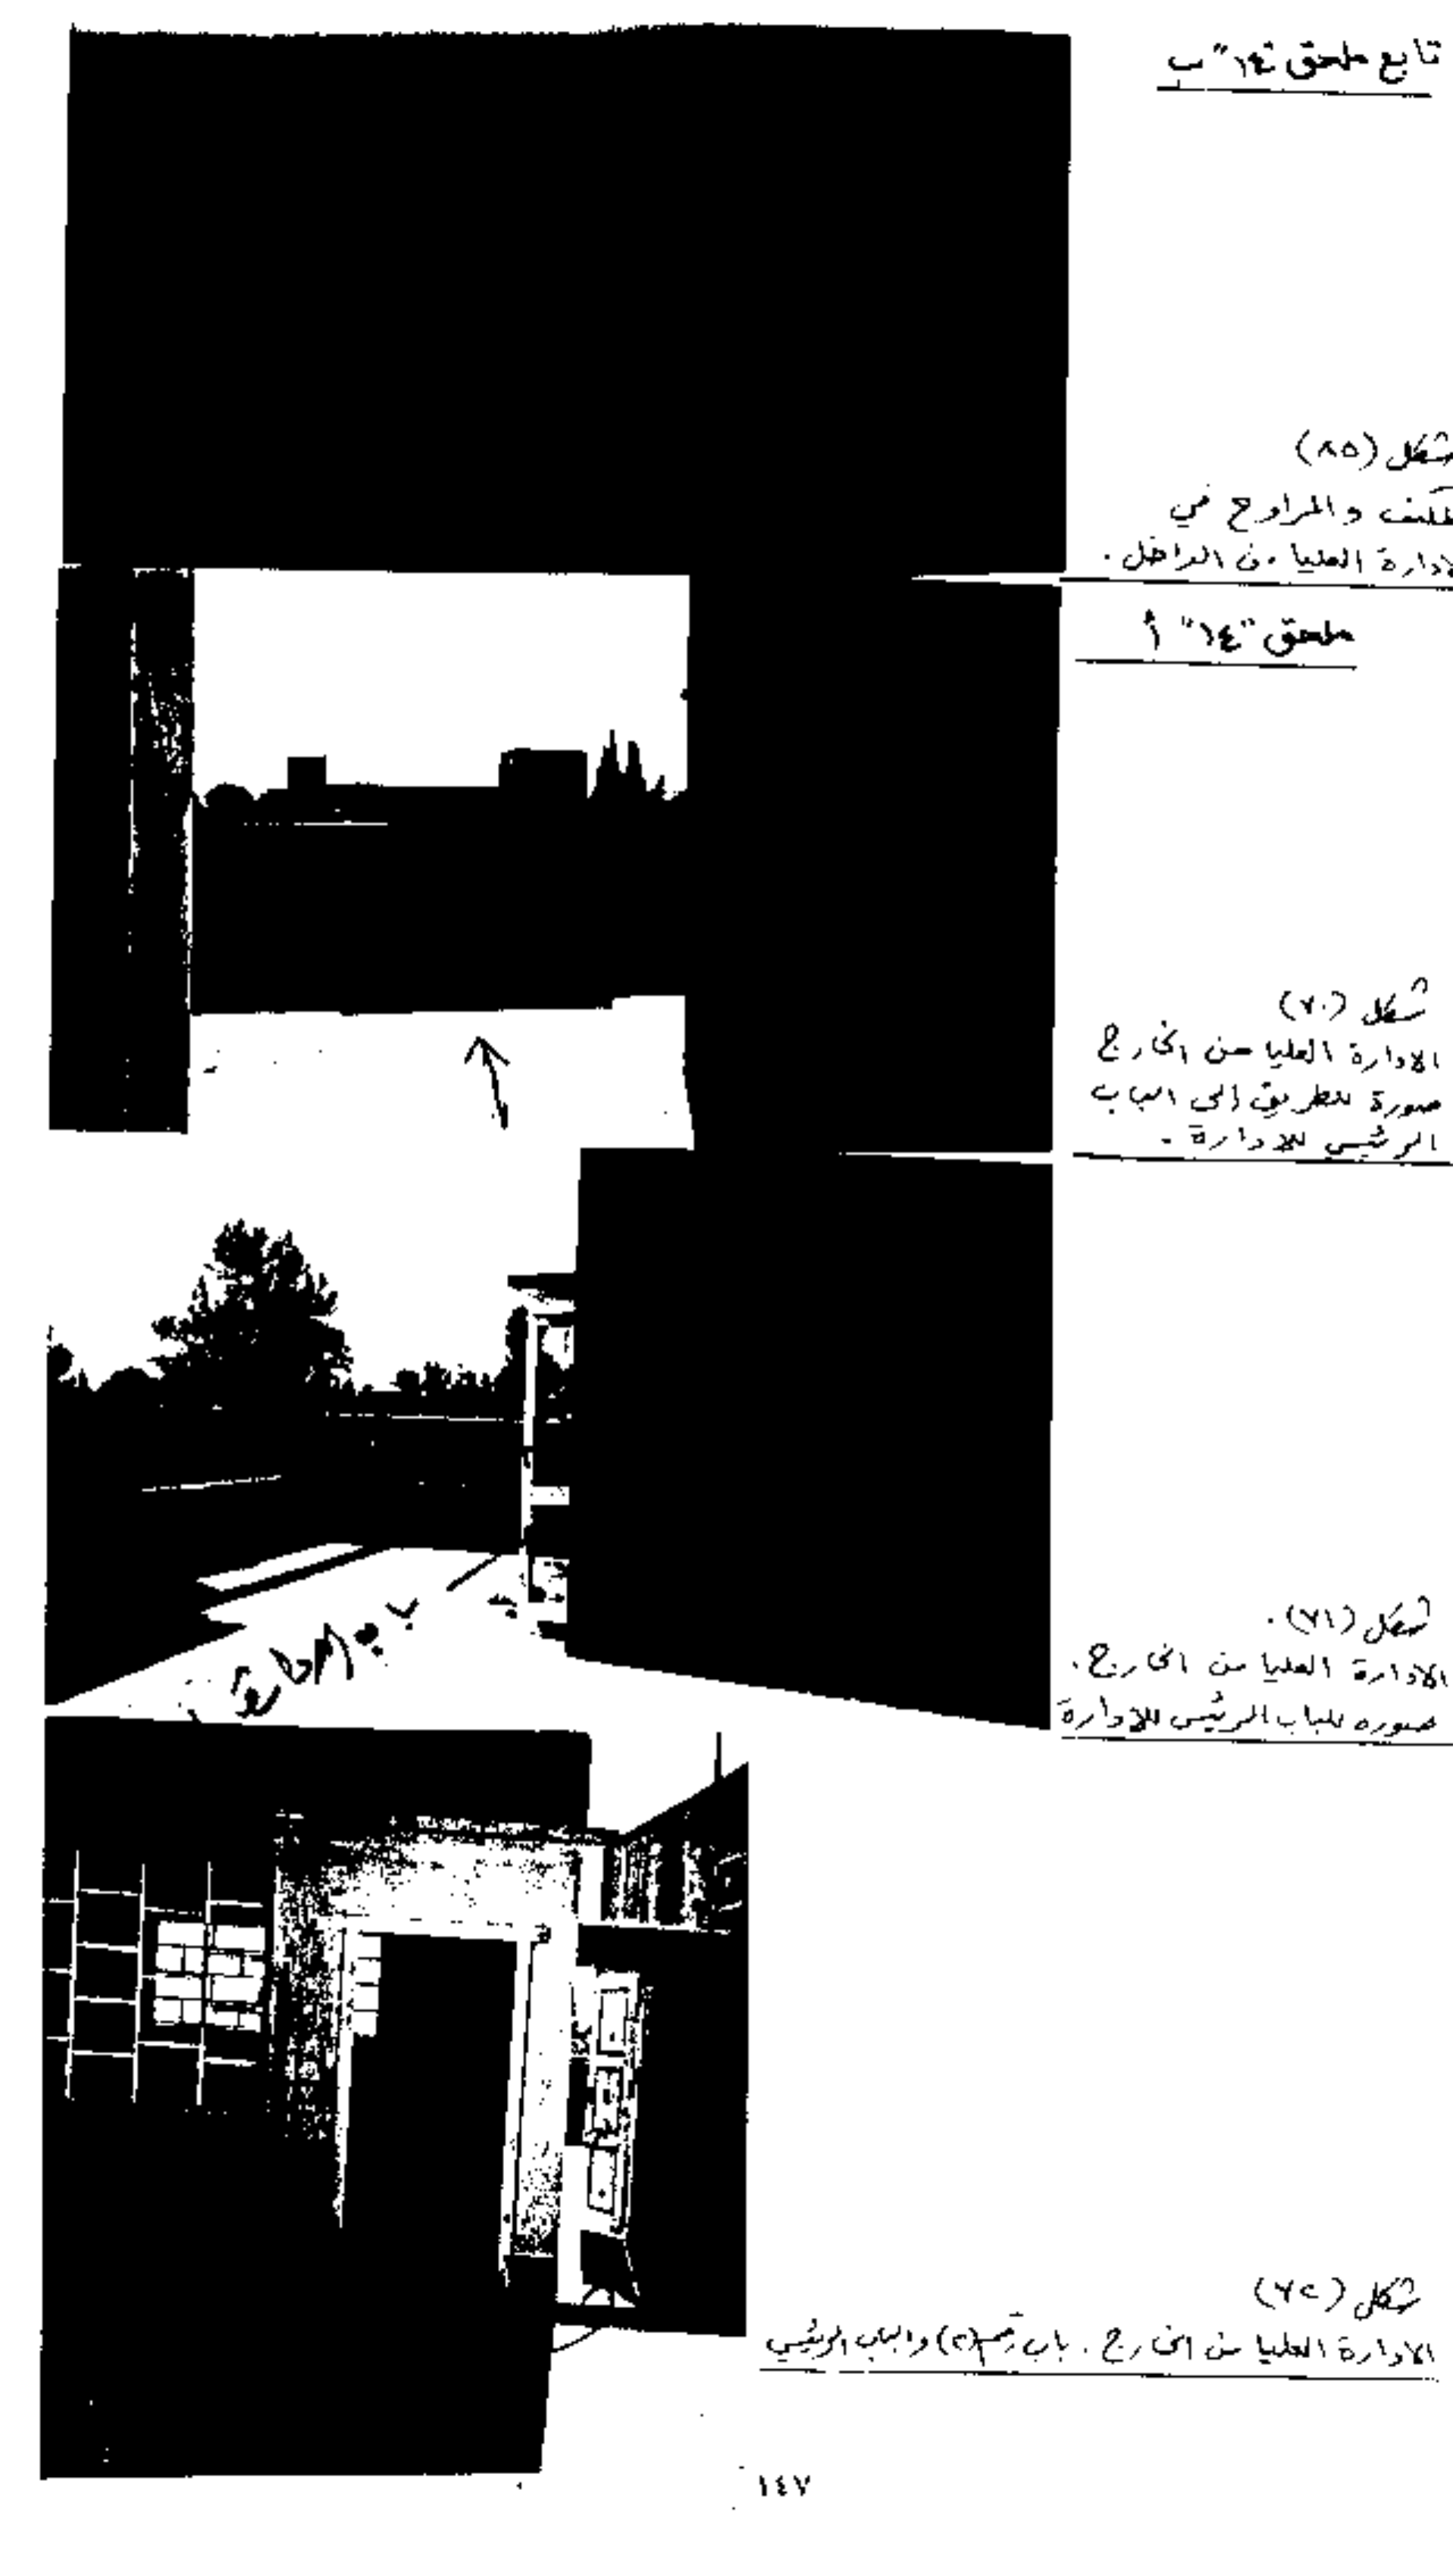 تابع ملحق "١٤" ب
شكل (٨٥)
والمراوح في
الادارة العليا من الداخل .
ملحق "١٤" أ
شكل (٧٠)
الادارة العليا من الخارج
صورة للطريق إلى الباب
الرئيسي للادارة .
شكل (٧١) .
الادارة العليا من الخارج .
صوره للباب الرئيسي للادارة
شكل (٧٢)
الادارة العليا من الخارج . باب رقم (٢) والباب الرئيسي
١٤٧